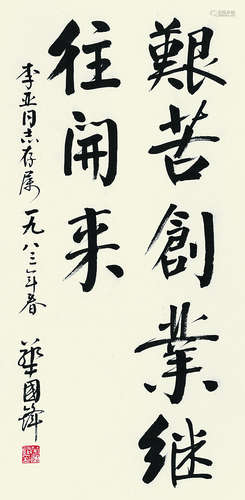 艱苦創業继
往開来
李亚同志存属
一九八三年春
華國鋒